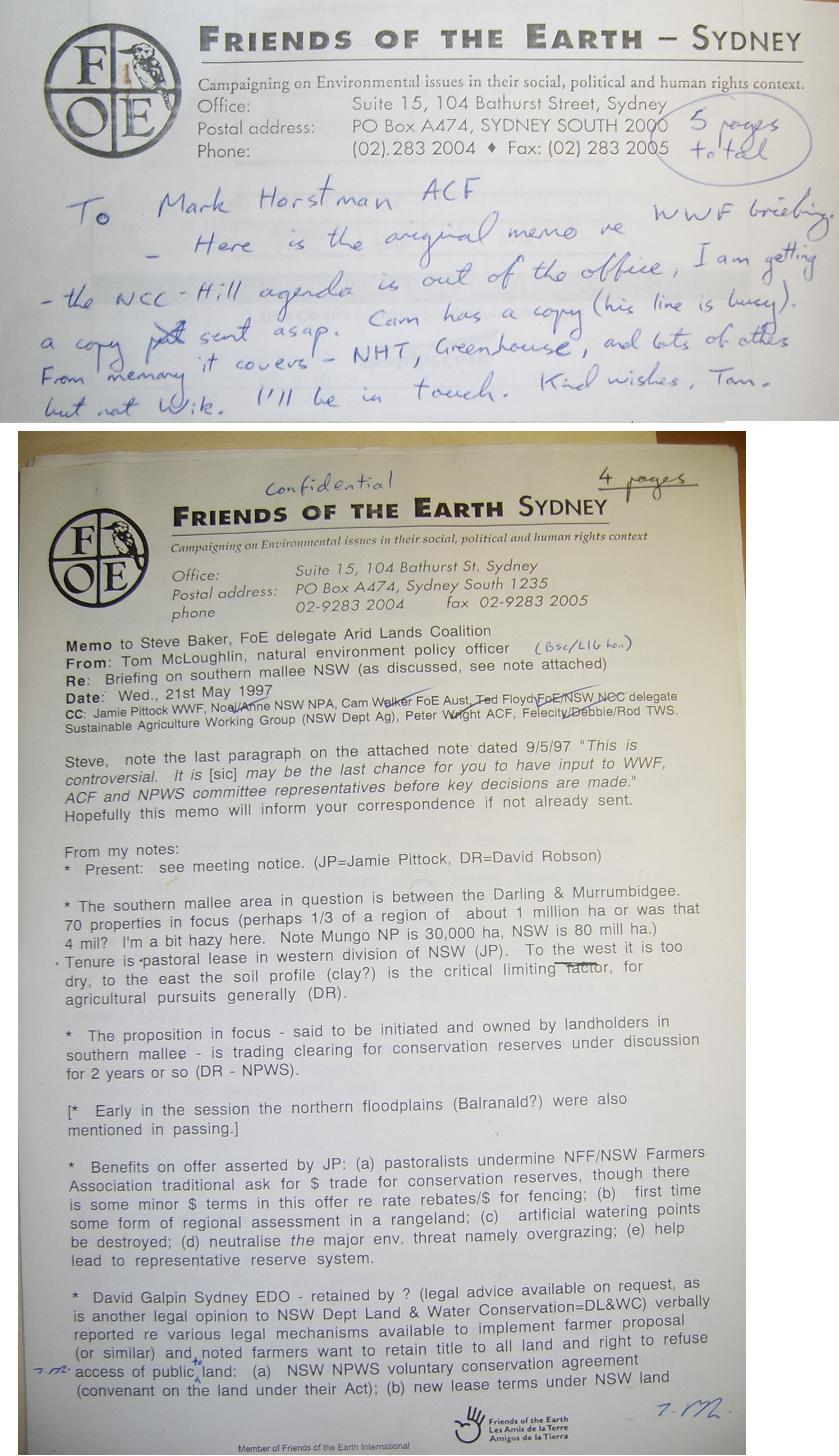 F
O E
FRIENDS OF THE EARTH – SYDNEY
Campaigning on Environmental issues in their social, political and human rights context.
Office: Suite 15, 104 Bathurst Street, Sydney
Postal address: PO Box A474, SYDNEY SOUTH 2000
Phone: (02).283 2004 ♦ Fax: (02) 283 2005
5 pages
total
To Mark Horstman ACF
- Here is the original memo re WWF briefing.
- the NCC-Hill agenda is out of the office, I am getting
a copy sent asap. Cam has a copy (his line is busy).
From memory it covers - NHT, Greenhouse, and lots of others
but not Wik. I'll be in touch. Kind wishes, Tom.
Confidential
4 pages
F
O E
FRIENDS OF THE EARTH SYDNEY
Campaigning on Environmental issues in their social, political and human rights context
Office: Suite 15, 104 Bathurst St. Sydney
Postal address: PO Box A474, Sydney South 1235
phone 02-9283 2004 fax 02-9283 2005
Memo to Steve Baker, FoE delegate Arid Lands Coalition
From: Tom McLoughlin, natural environment policy officer (Bsc/LlB hon)
Re: Briefing on southern mallee NSW (as discussed, see note attached)
Date: Wed., 21st May 1997
CC: Jamie Pittock WWF, Noel/Anne NSW NPA, Cam Walker FoE Aust, Ted Floyd FoE/NSW NCC delegate
Sustainable Agriculture Working Group (NSW Dept Ag), Peter Wright ACF, Felecity/Debbie/Rod TWS.
Steve, note the last paragraph on the attached note dated 9/5/97 "This is
controversial. It is [sic] may be the last chance for you to have input to WWF,
ACF and NPWS committee representatives before key decisions are made."
Hopefully this memo will inform your correspondence if not already sent.
From my notes:
* Present: see meeting notice. (JP=Jamie Pittock, DR=David Robson)
* The southern mallee area in question is between the Darling & Murrumbidgee.
70 properties in focus (perhaps 1/3 of a region of about 1 million ha or was that
4 mil? I'm a bit hazy here. Note Mungo NP is 30,000 ha, NSW is 80 mill ha.)
Tenure is pastoral lease in western division of NSW (JP). To the west it is too
dry, to the east the soil profile (clay?) is the critical limiting factor, for
agricultural pursuits generally (DR).
* The proposition in focus - said to be initiated and owned by landholders in
southern mallee - is trading clearing for conservation reserves under discussion
for 2 years or so (DR - NPWS).
[* Early in the session the northern floodplains (Balranald?) were also
mentioned in passing.]
* Benefits on offer asserted by JP: (a) pastoralists undermine NFF/NSW Farmers
Association traditional ask for $ trade for conservation reserves, though there
is some minor $ terms in this offer re rate rebates/$ for fencing; (b) first time
some form of regional assessment in a rangeland; (c) artificial watering points
be destroyed; (d) neutralise the major env. threat namely overgrazing; (e) help
lead to representative reserve system.
* David Galpin Sydney EDO - retained by ? (legal advice available on request, as
is another legal opinion to NSW Dept Land & Water Conservation=DL&WC) verbally
reported re various legal mechanisms available to implement farmer proposal
(or similar) and noted farmers want to retain title to all land and right to refuse
T.M. access of public to land: (a) NSW NPWS voluntary conservation agreement
(convenant on the land under their Act); (b) new lease terms under NSW land
T.M.
Friends of the Earth
Les Amis de la Terre
Amigos de la Tierra
Member of Friends of the Earth International